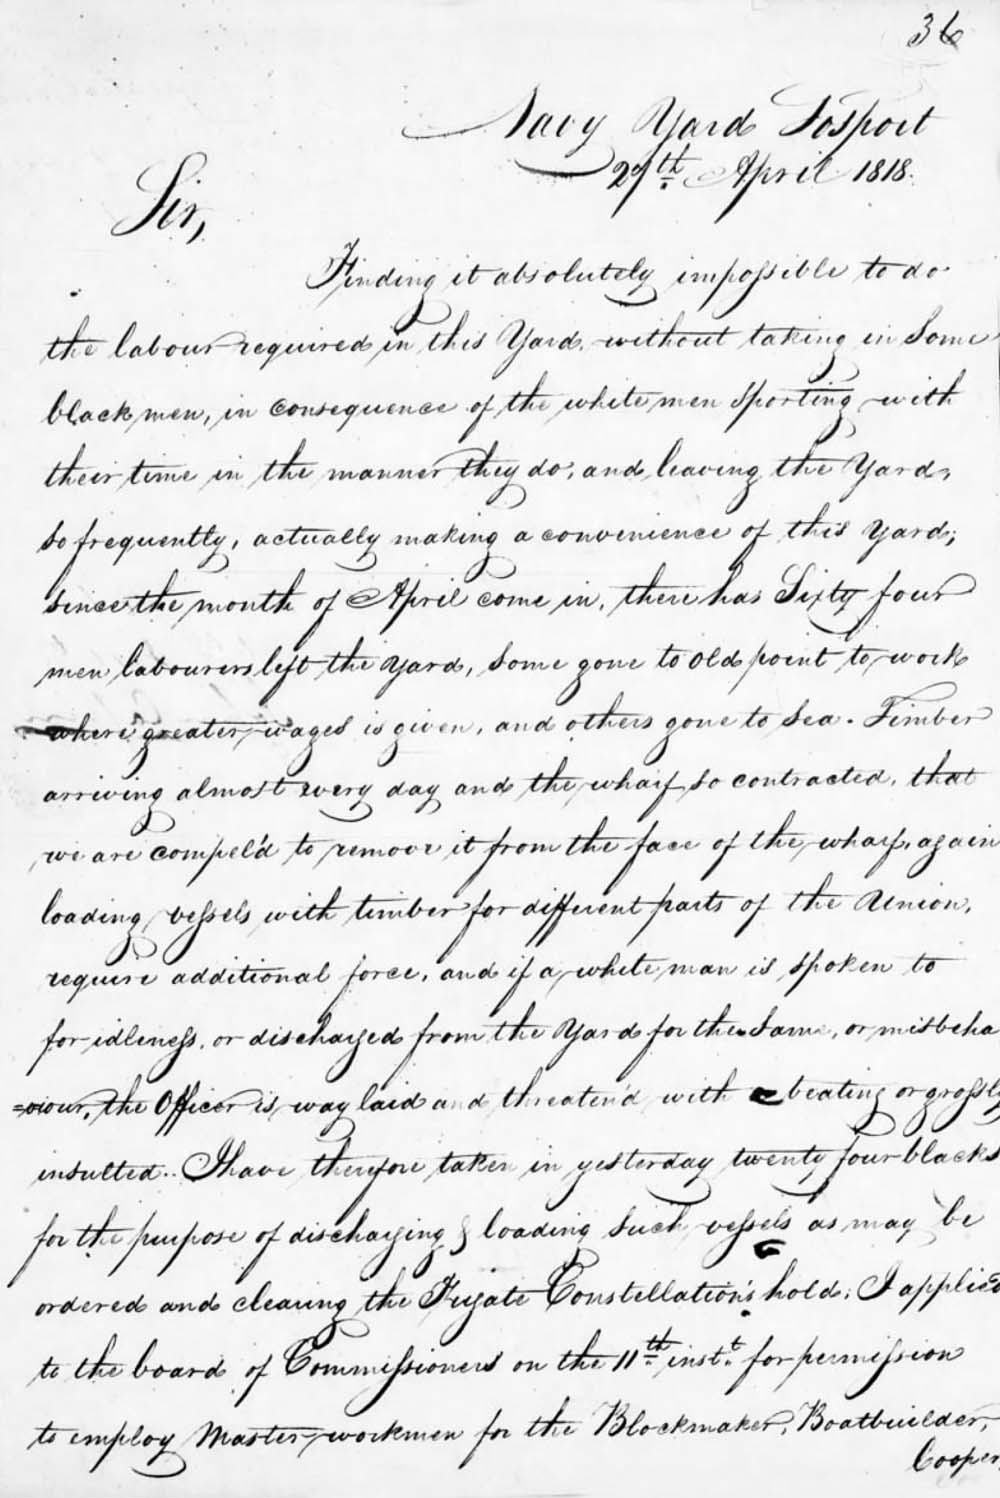 36
Navy Yard Gosport
27th April 1818.
Sir,
Finding it absolutely impossible to do
the labour required in this Yard, without taking in Some
black men, in consequence of the white men Sporting with
their time in the manner they do, and leaving the Yard,
so frequently, actually making a convenience of this Yard;
since the month of April come in, there has Sixty four
men labourers left the Yard, Some gone to Old point to work
where greater wages is given, and others gone to Sea. Timber
arriving almost every day and the wharf so contracted, that
we are compel'd to remove it from the face of the wharf, again
loading vessels with timber for different parts of the Union,
require additional force, and if a white man is spoken to
for idleness, or discharged from the Yard for the Same, or misbeha
=viour, the Officer is way laid and threaten'd with a beating or grossly
insulted.. I have therefore taken in yesterday twenty four blacks
for the purpose of discharging & loading such vessels as may be
ordered and clearing the Frigate Constellation's hold; I applied
to the board of Commissioners on the 11th inst. for permission
to employ Master workmen for the Blockmaker, Boatbuilder,
Cooper,